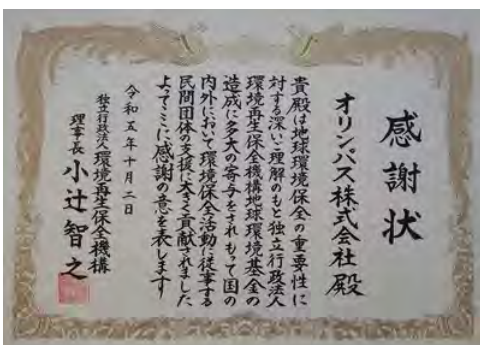 感謝状
オリンパス株式会社 殿
貴殿は地球環境保全の重要性に
対する深いご理解のもと独立行政法人
環境再生保全機構地球環境基金の
造成に多大の寄与をされもって国の
内外において環境保全活動に従事する
民間団体の支援に大きく貢献されました
よってここに感謝の意を表します
令和五年十月二日
独立行政法人環境再生保全機構
理事長 小辻智之